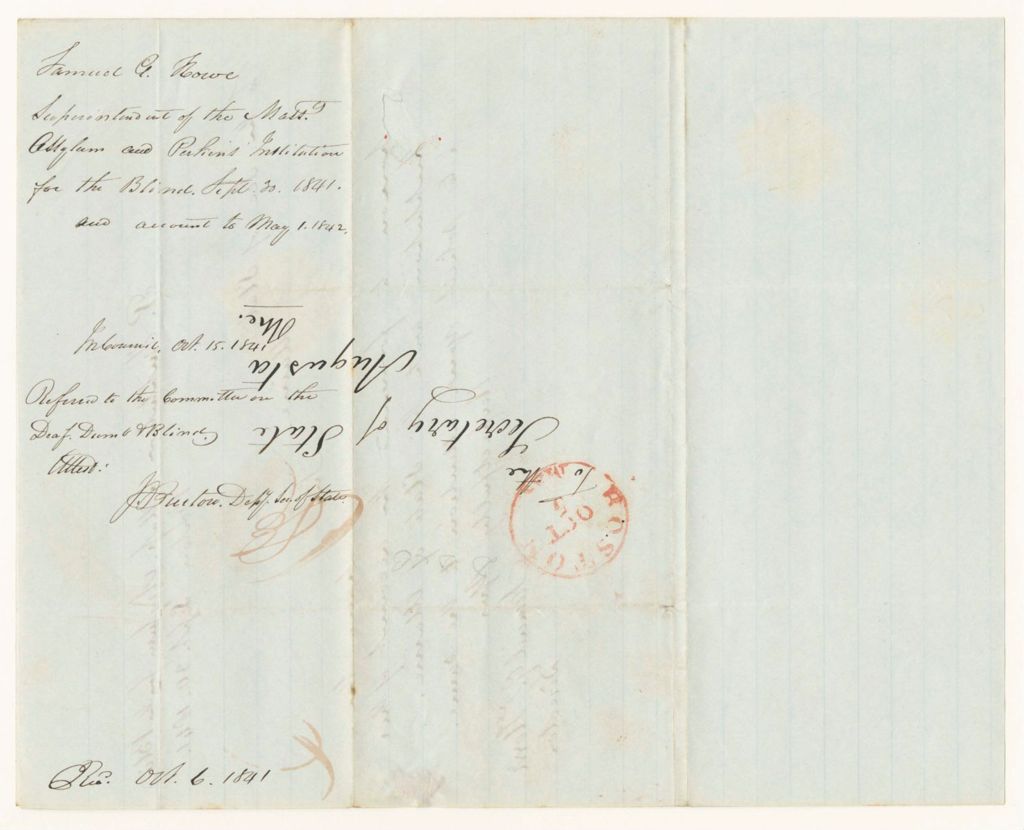 Samuel G. Howe
Superintendent of the Mass.
Assylum and Perkins' Institution
for the Blind. Sept. 30. 1841.
and account to May 1. 1842.
In Council, Oct. 15. 1841
Refered to the Committee on the
Deaf. Dumb & Blind.
Attest:
Depy. Sec. of State
Rec. Oct. 6. 1841
To the
Secretary of State
Augusta
Me.
BOSTON
OCT